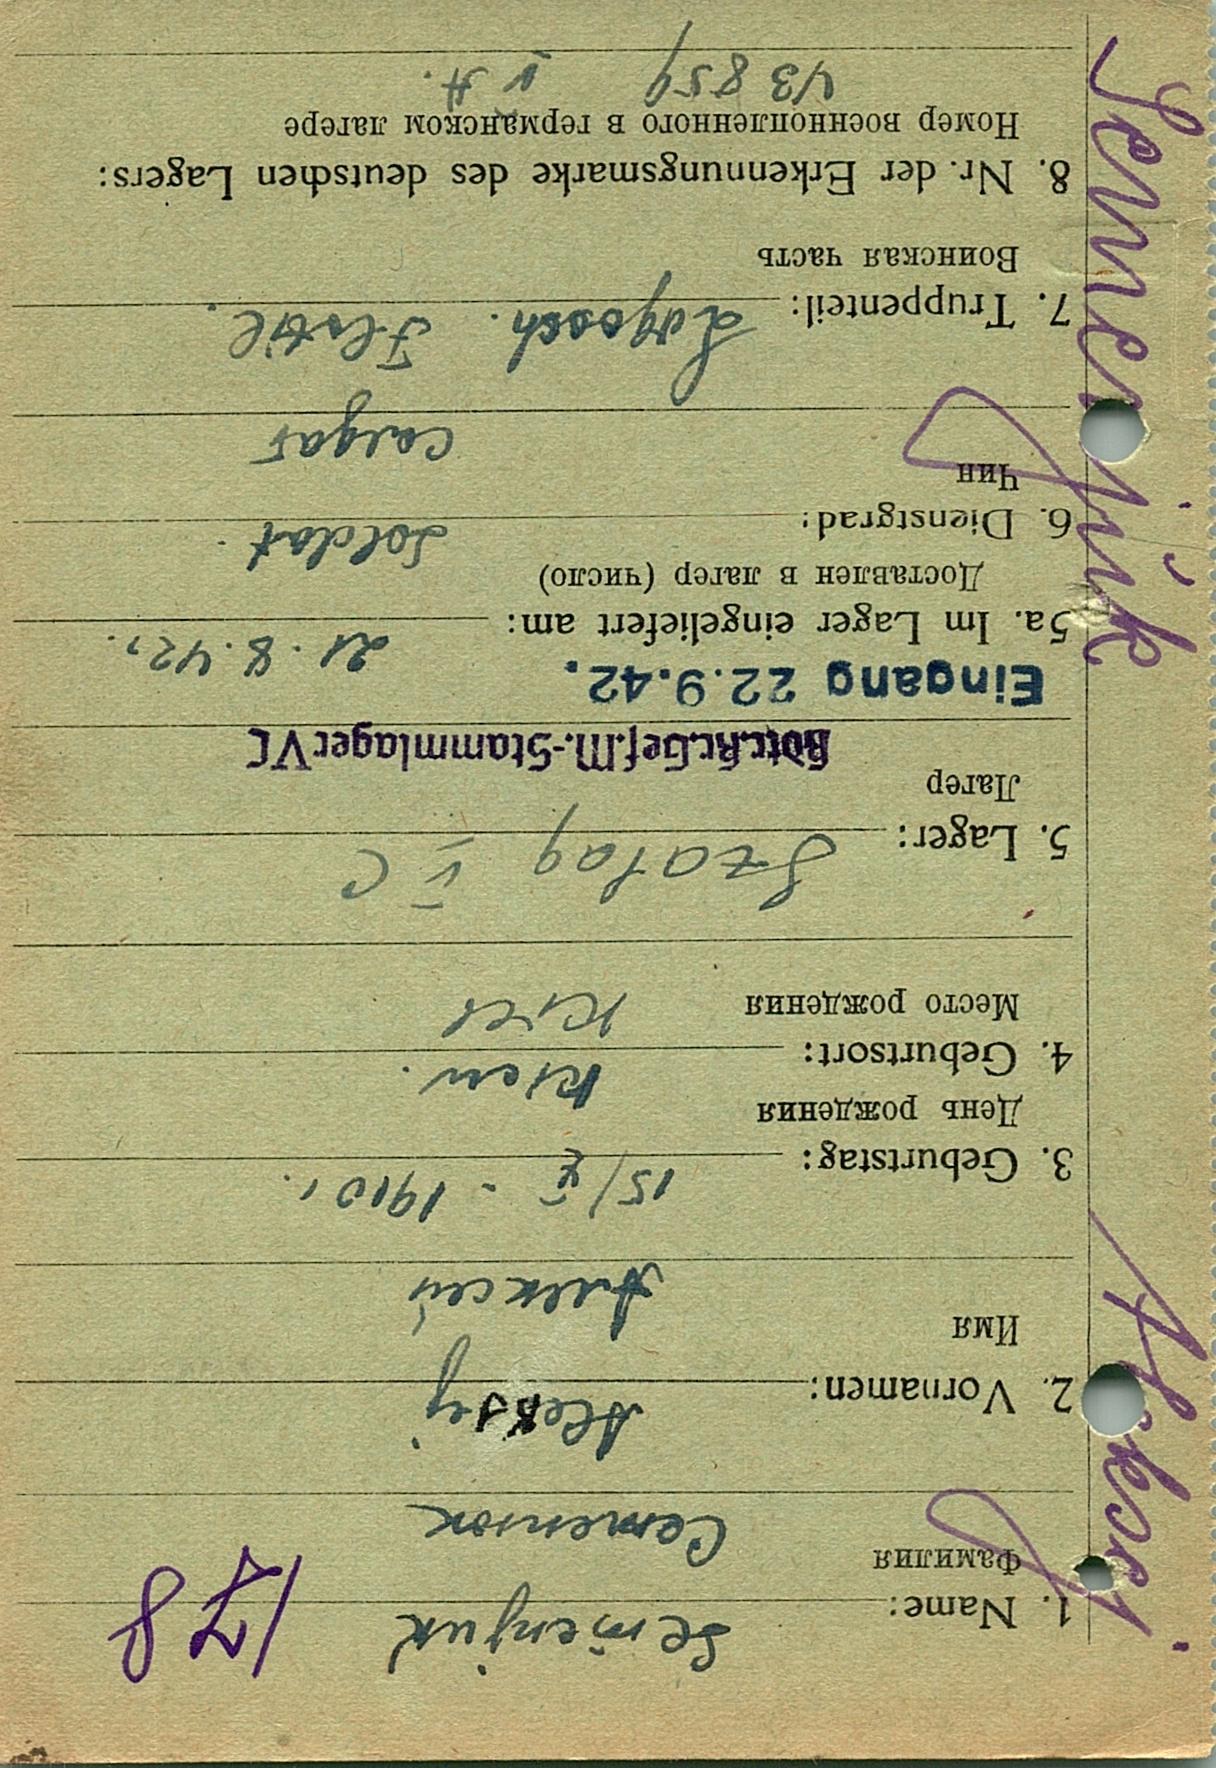 178
1. Name: Semenjuk
Фамилия
Семенюк
2. Vornamen: Aleksej
Имя
Алексей
3. Geburtstag: 15/X - 1910
День рождения
4. Geburtsort: Kiew.
Место рождения
Киев
5. Lager: Sztalag V C
Лагер
Betr.Kr.Gef.M.-Stammlager V C
Eingang 22.9.42.
5a. Im Lager eingeliefert am: 21.8.42,
Доставлен в лагер (число)
6. Dienstgrad: Soldat.
Чин
Солдат
7. Truppenteil:
Воинская часть
8. Nr. der Erkennungsmarke des deutschen Lagers:
Номер военнопленного в германском лагере
43859 V A.
Aleksej Semenjuk